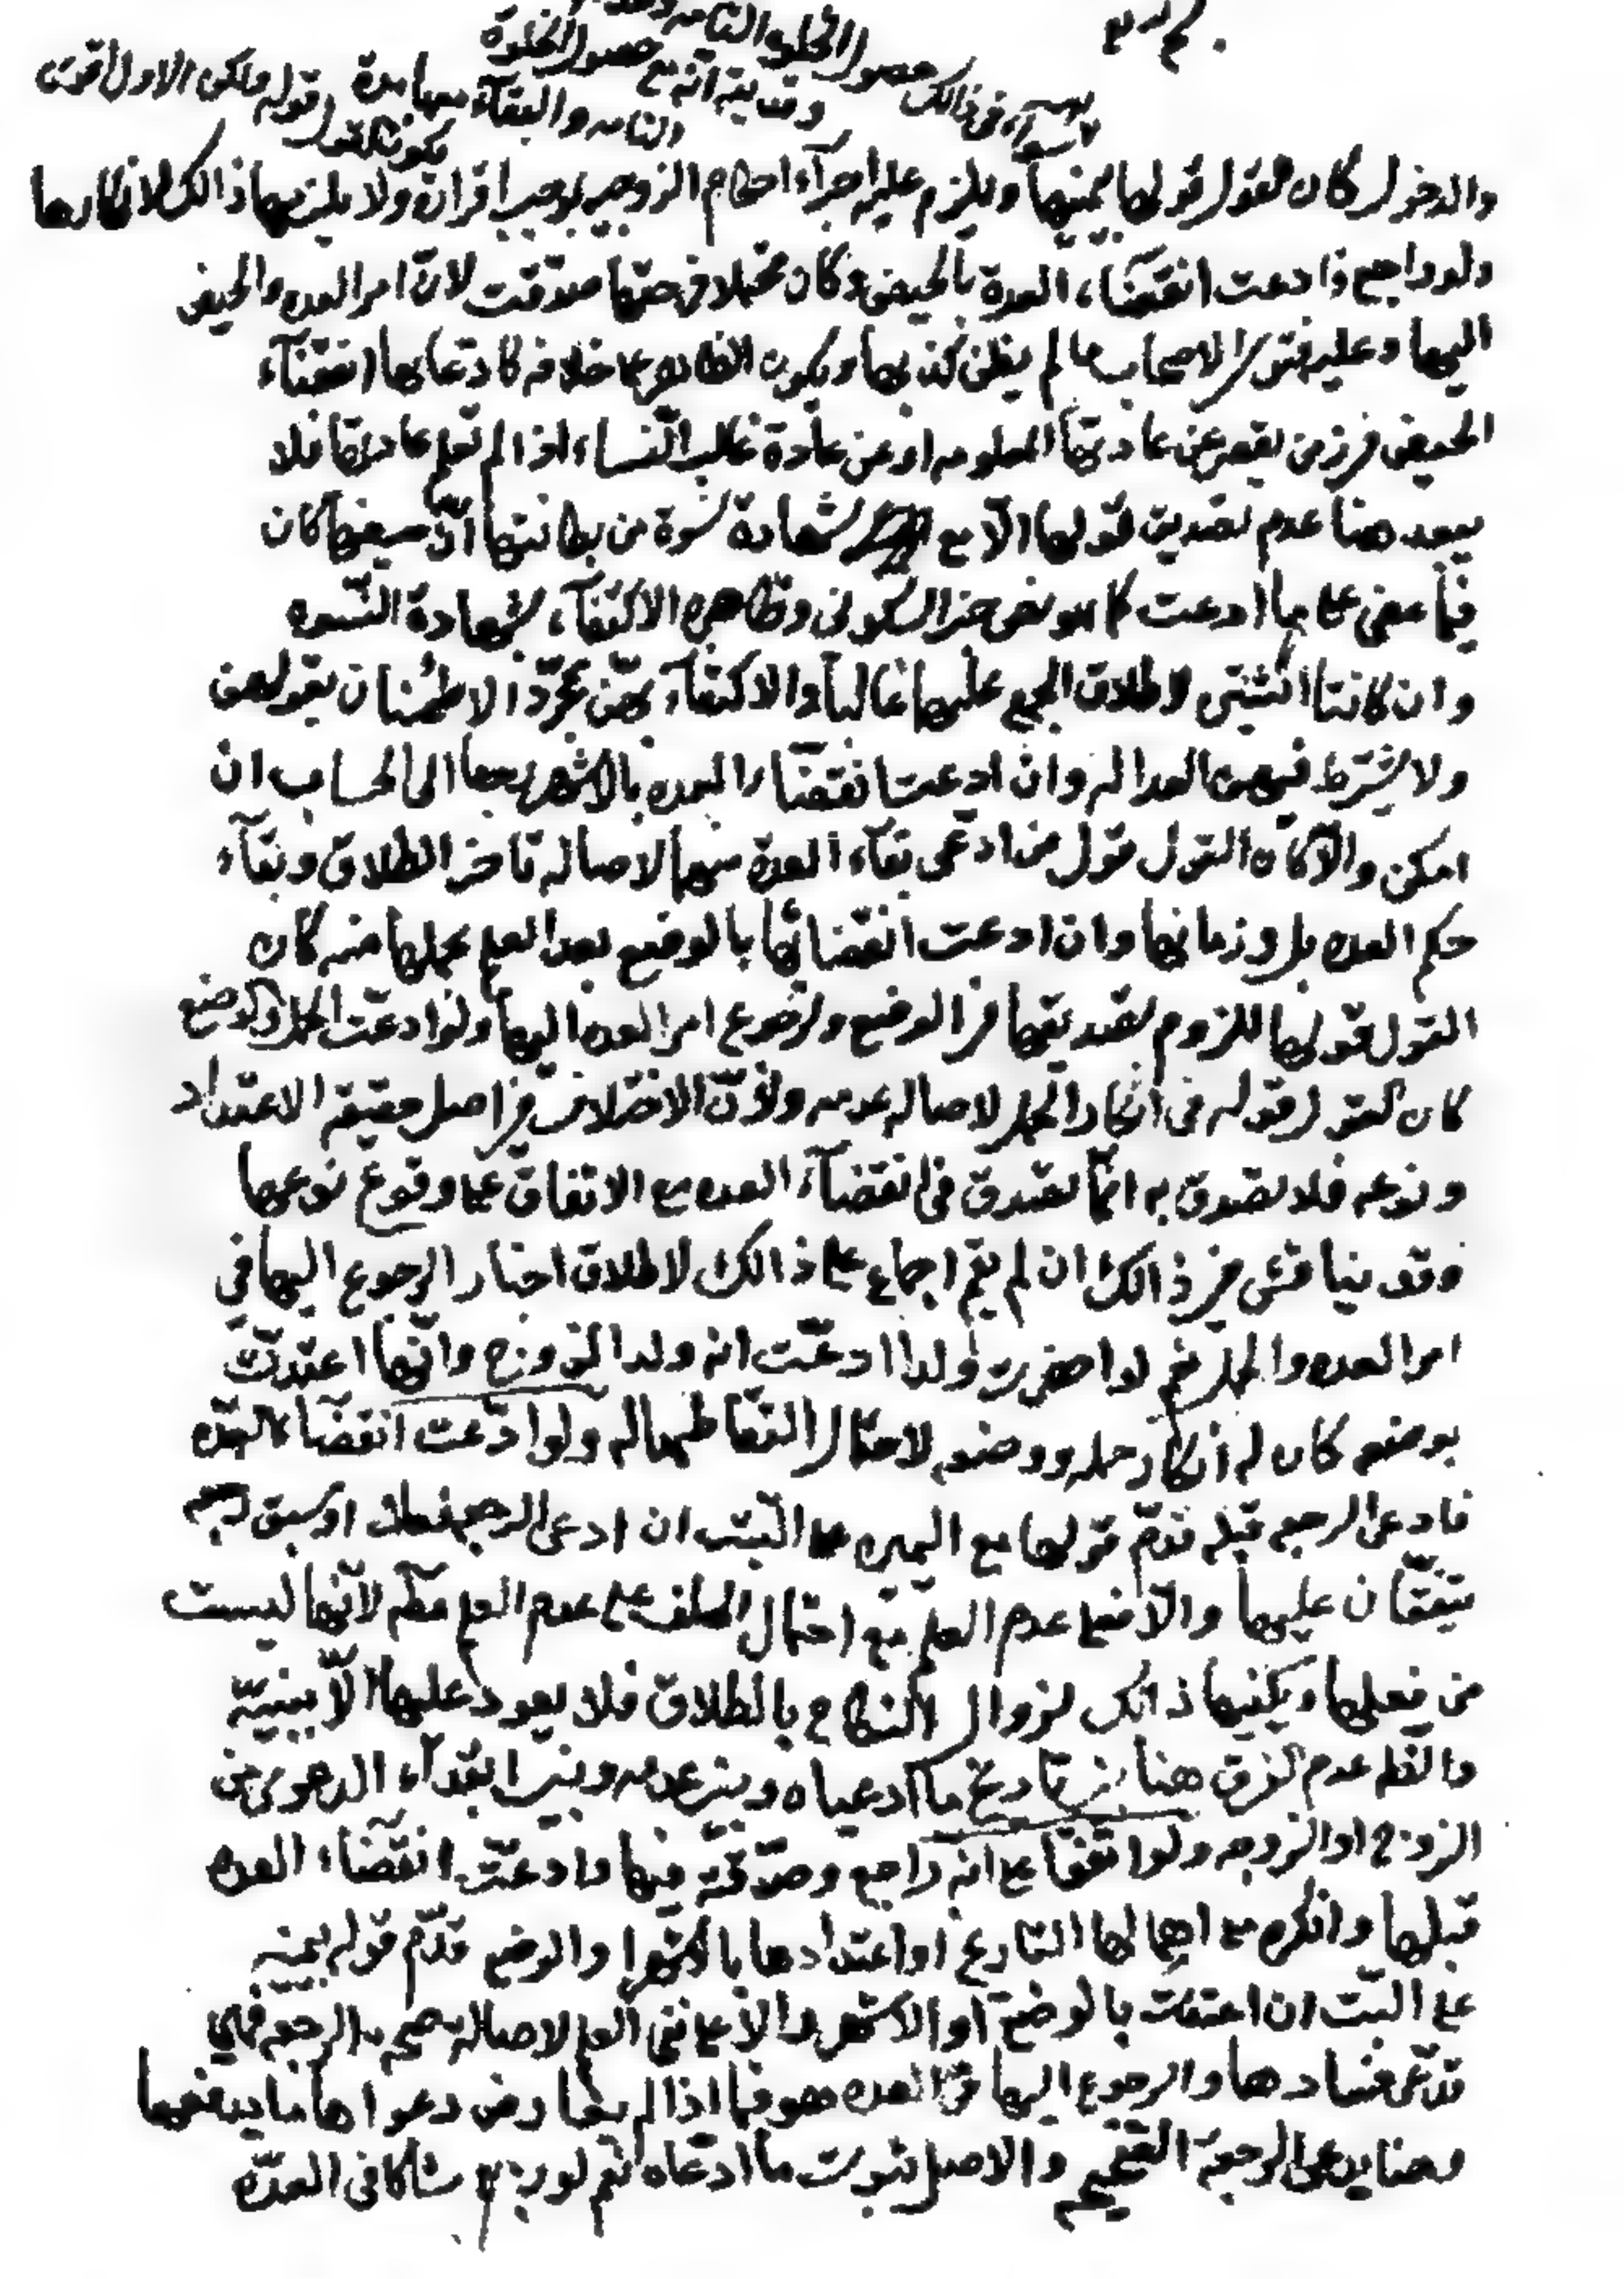 سوآء في ذالك حصول الخلوة التامه
وقد يق انه مع حصول الخلوة
التامه والبقآء معها مدة
يكون القول قوله ولكن الاول اقوى
والدخول كان القول قولها بيمينها ويلزم عليه اجرآء احكام الزوجيه بموجب اقراره ولا يلزمها ذالك لانكارها
ولو راجع فادعت انقضاء العدة بالحيض وكان محتملا في حقها صدقت لان امر العده والحيض
اليها وعليه فتوى الاصحاب ما لم يظن كذبها ويكون الظاهر على خلافه كادعائها انقضآء
الحيض في زمن يقصر عن عادتها المعلومه او عن عادة غالب النساء اذا لم تعلم عادتها فلا
يبعد هنا عدم تصديق قولها الا مع شهادة نسوة من بطانتها ان حيضها كان
فيما مضى على ما ادعت كما هو نص خبر السكوني وظاهره الاكتفآء بشهادة النسوه
وان كانتا اثنتين لاطلاق الجمع عليهما غالباً والاكتفآء بهن بمجرد الاطمئنان بقولهن
ولا يشترط فيهن العداله وان ادعت انقضآء العده بالاشهر رجعا الى الحساب ان
امكن والا كان القول قول من ادعى بقآء العدة منهما لاصالة تاخر الطلاق وبقآء
حكم العده وزمانها وان ادعت انقضائها بالوضع بعد العلم بحملها منه كان
القول قولها للزوم تصديقها في الوضع ولرجوع امر العده اليها ولو ادعت الحمل والوضع
كان القول قوله في انكار الحمل لاصالة عدمه ولان الاختلاف في اصل حقيقة الاعتداد
ونوعه فلا تصدق به انما تصدق في انقضآء العده مع الاتفاق على وقوع نوعها
وقد يناقش في ذالك ان لم يقم اجماع على ذالك لاطلاق اخبار الرجوع اليها في
امر العده والحمل نعم لو احضرت ولدا ادعت انه ولد الزوج وانها اعتدت
بوضعه كان له انكار حمله ووضعه لاحتمال التقاطها له ولو ادعت انقضاء العده
فادعى الرجعه قبله قدم قولها مع اليمين على البت ان ادعى الرجعه فعلا او سبق رجعه
يتفقان عليها والا فعلى عدم العلم مع احتمال الحلف على عدم العلم مط لانها ليست
من فعلها ويكفيها ذالك لزوال النكاح بالطلاق فلا يعود عليها الا ببينة
والظ عدم الفرق هنا بين تاريخ ما ادعياه وبين عدمه وبين ابتدآء الدعوى من
الزوج او الزوجه ولو اتفقا على انه راجع وصدقته فيها وادعت انقضاء العده
قبلها وانكره مع اهمالها التاريخ او اعتدادها بالاشهر او الوضع قدم قوله بيمينه
على البت ان اعتدت بالوضع او الاشهر والا على نفي العلم لاصالة صحه الرجعه فهي
تدعى فسادها والرجوع اليها في العده هو فيما اذا لم يعارض دعواها ما يدفعها
وهنا يدعى الرجعة الصحيحه والاصل ثبوت ما ادعاه نعم لو رجع شاكا في العده